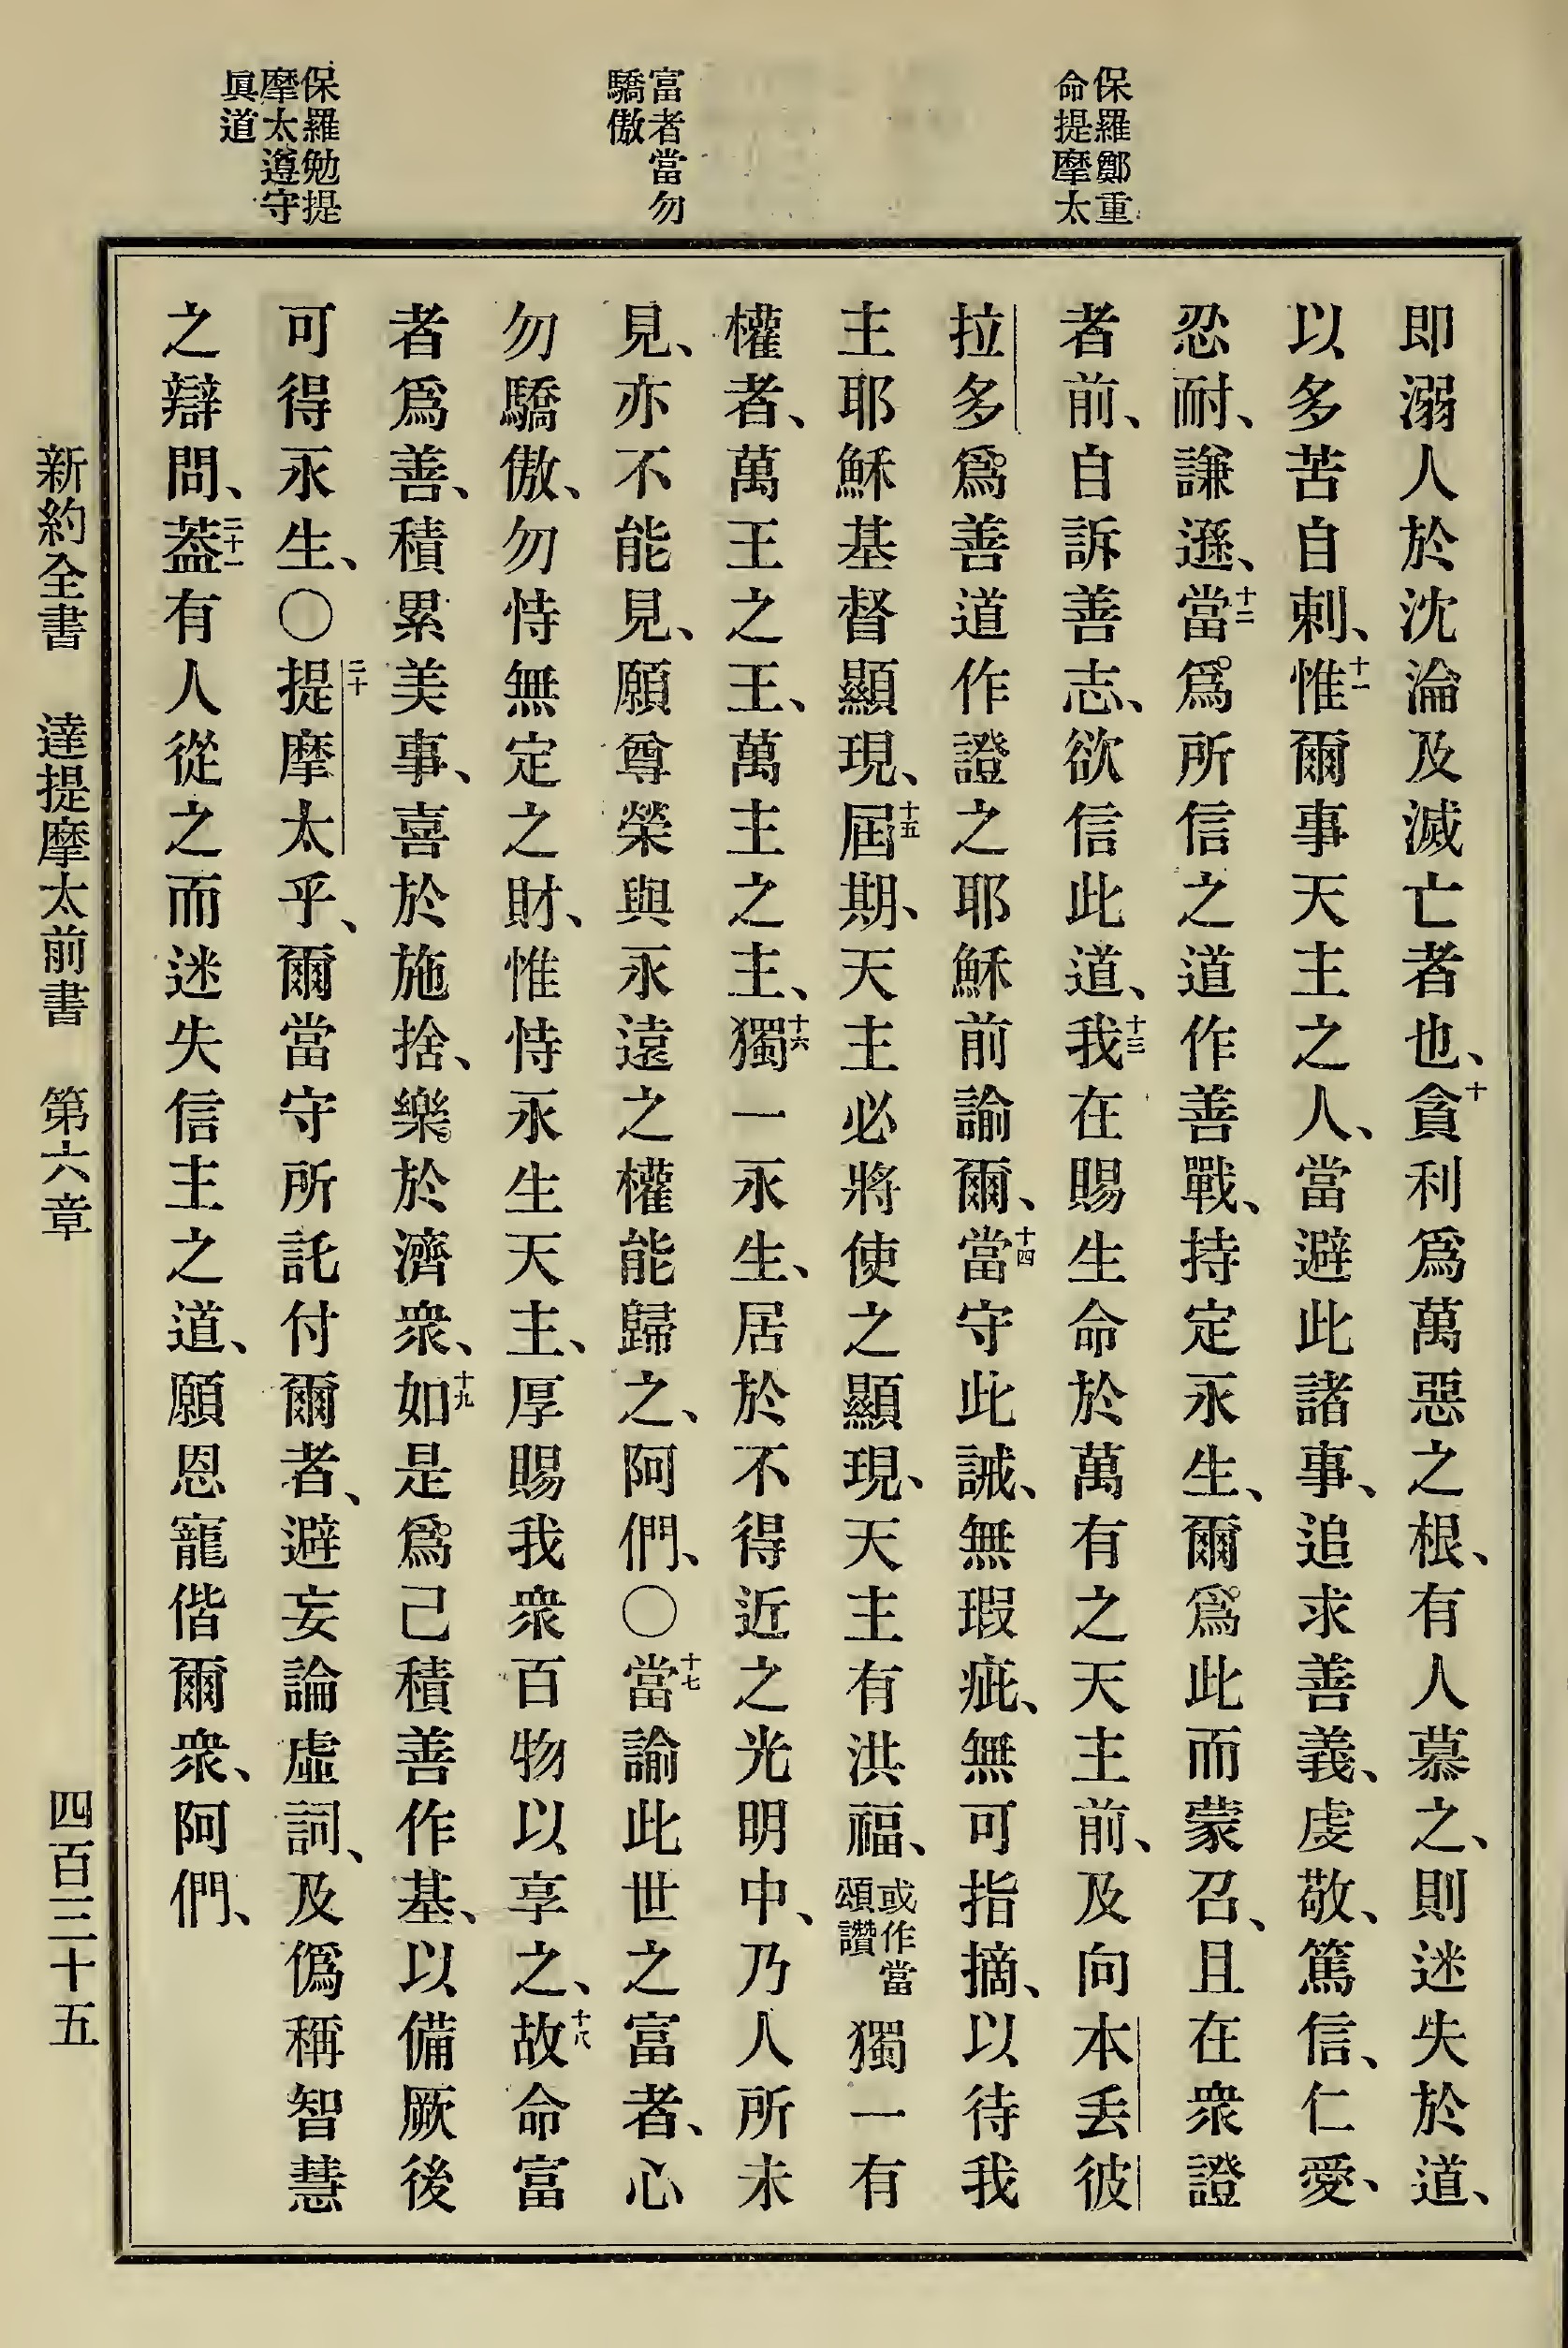 保羅鄭重
命提摩太
富者當勿
驕傲
保羅勉提
摩太遵守
眞道
即溺人於沈淪及滅亡者也、十貪利爲萬惡之根、有人慕之、則迷失於道、
以多苦自刺、十一惟爾事天主之人、當避此諸事、追求善義、虔敬、篤信、仁愛、
忍耐、謙遜、十二當爲所信之道作善戰、持定永生、爾爲此而蒙召、且在衆證
者前、自訴善志、欲信此道、十三我在賜生命於萬有之天主前、及向本丟彼
拉多爲善道作證之耶穌前諭爾、十四當守此誡、無瑕疵、無可指摘、以待我
主耶穌基督顯現、十五屆期、天主必將使之顯現、天主有洪福、或作當頌讚獨一有
權者、萬王之王、萬主之主、十六獨一永生、居於不得近之光明中、乃人所未
見、亦不能見、願尊榮與永遠之權能歸之、阿們、〇十七當諭此世之富者、心
勿驕傲、勿恃無定之財、惟恃永生天主、厚賜我衆百物以享之、十八故命富
者爲善、積累美事、喜於施捨、樂於濟衆、十九如是爲己積善作基、以備厥後
可得永生、〇二十提摩太乎、爾當守所託付爾者、避妄論虛詞、及僞稱智慧
之辯問、二十一蓋有人從之而迷失信主之道、願恩寵偕爾衆、阿們、
新約全書 達提摩太前書 第六章 四百三十五